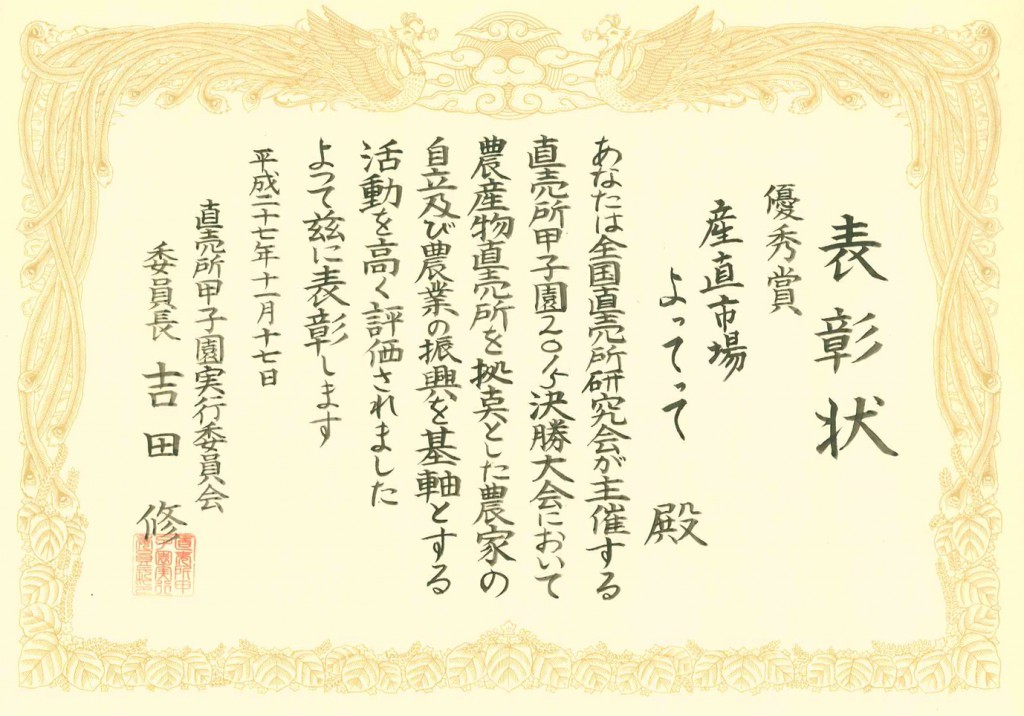 表彰状
優秀賞
産直市場
よってって 殿
あなたは全国直売所研究会が主催する
直売所甲子園2015決勝大会において
農産物直売所を拠点とした農家の
自立及び農業の振興を基軸とする
活動を高く評価されました
よって茲に表彰します
平成二十七年十一月十七日
直売所甲子園実行委員会
委員長 吉田 修